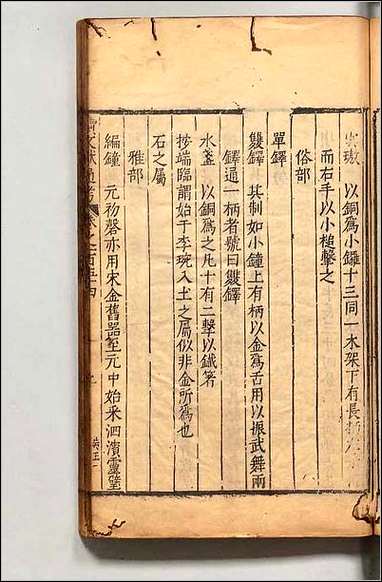 雲璈　以銅爲小鑼十三同一木架下有長柄左
而右手以小槌擊之
俗部
單鐸
雙鐸　其制如小鐘上有柄以金爲舌用以振武舞兩
鐸通一柄者號曰雙鐸
水盞　以銅爲之凡十有二擊以鐵箸
按端臨謂始于李琬入土之屬似非金所爲也
石之屬
雅部
編鐘　元初磬亦用宋金舊器至元中始釆泗濱靈壁
續文獻通考　卷之一百五十四